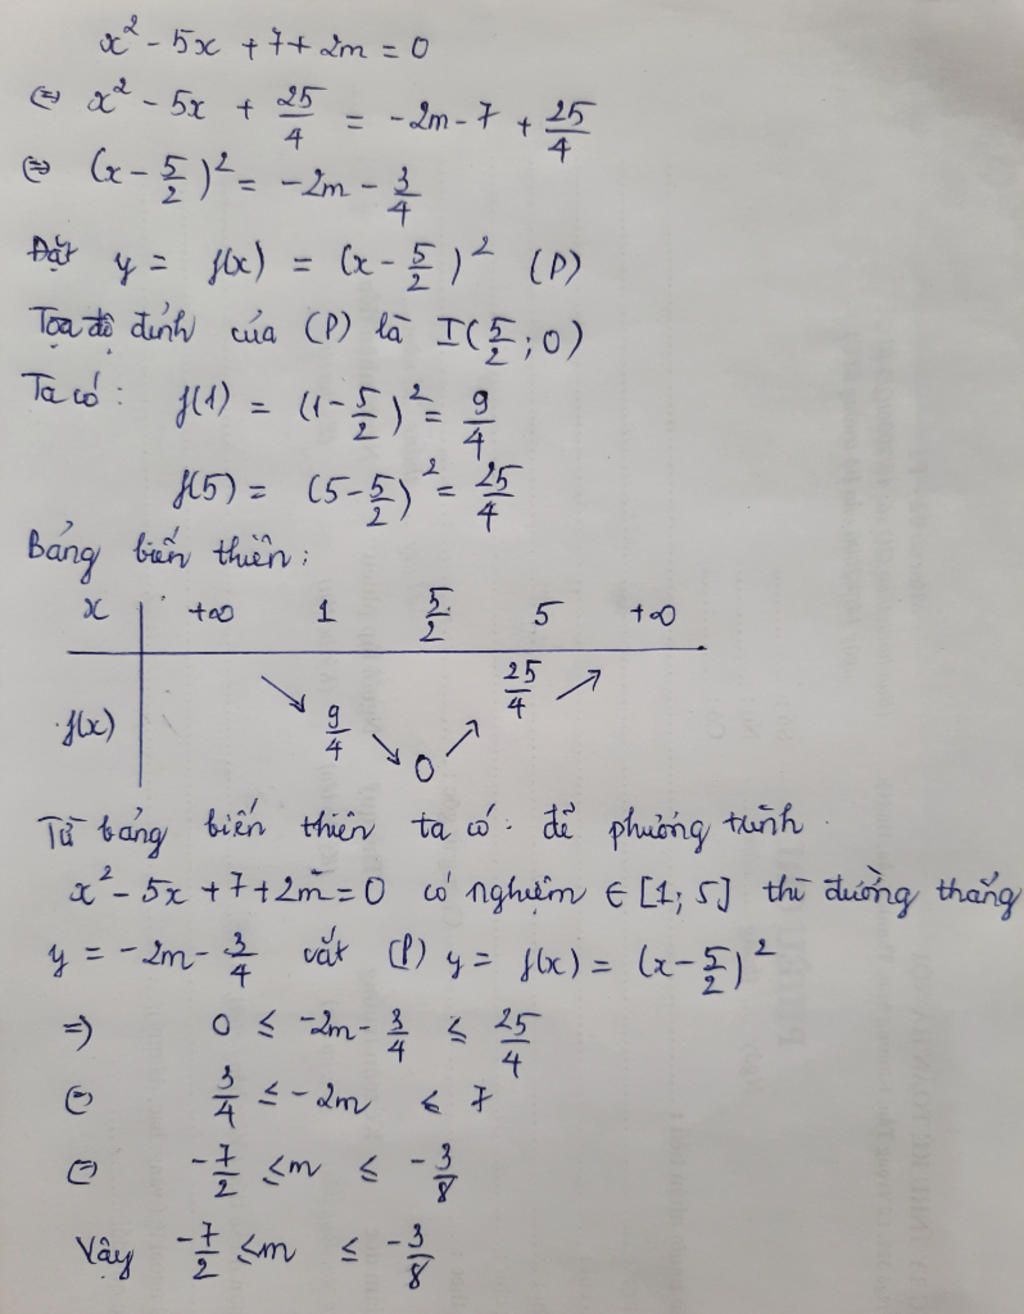 x² - 5x + 7 + 2m = 0
⇔ x² - 5x + 25/4 = -2m - 7 + 25/4
⇔ (x - 5/2)² = -2m - 3/4
Đặt y = f(x) = (x - 5/2)² (P)
Tọa độ đỉnh của (P) là I(5/2; 0)
Ta có: f(1) = (1 - 5/2)² = 9/4
f(5) = (5 - 5/2)² = 25/4
Bảng biến thiên:
x | +∞ 1 5/2 5 +∞
f(x) | ↘ 9/4 ↘ 0 ↗ 25/4 ↗
Từ bảng biến thiên ta có: để phương trình
x² - 5x + 7 + 2m = 0 có nghiệm ∈ [1; 5] thì đường thẳng
y = -2m - 3/4 cắt (P) y = f(x) = (x - 5/2)²
⇒ 0 ≤ -2m - 3/4 ≤ 25/4
⇔ 3/4 ≤ -2m ≤ 7
⇔ -7/2 ≤ m ≤ -3/8
Vậy -7/2 ≤ m ≤ -3/8